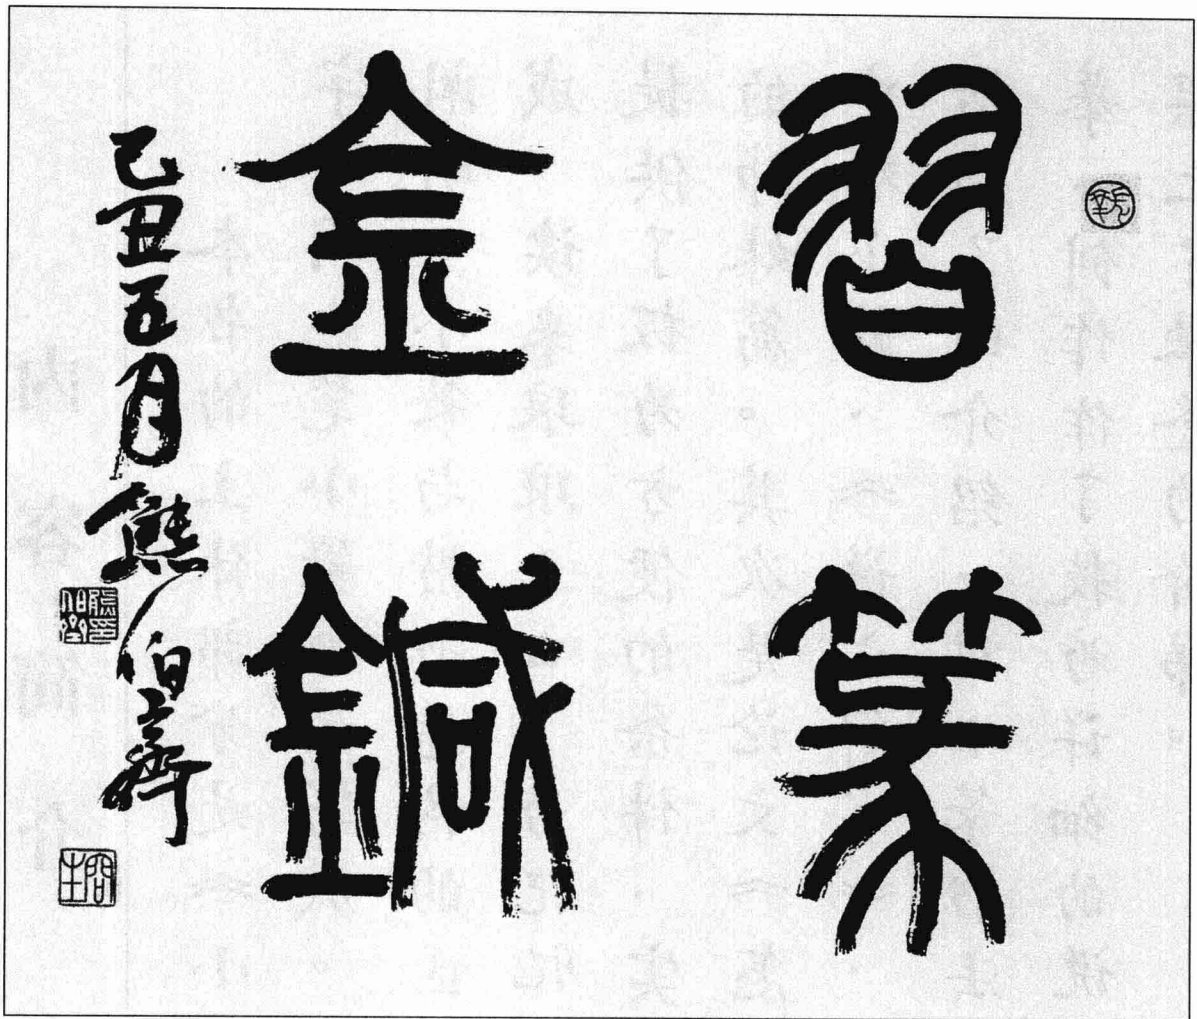 習篆
金鍼
己丑五月熊伯齊